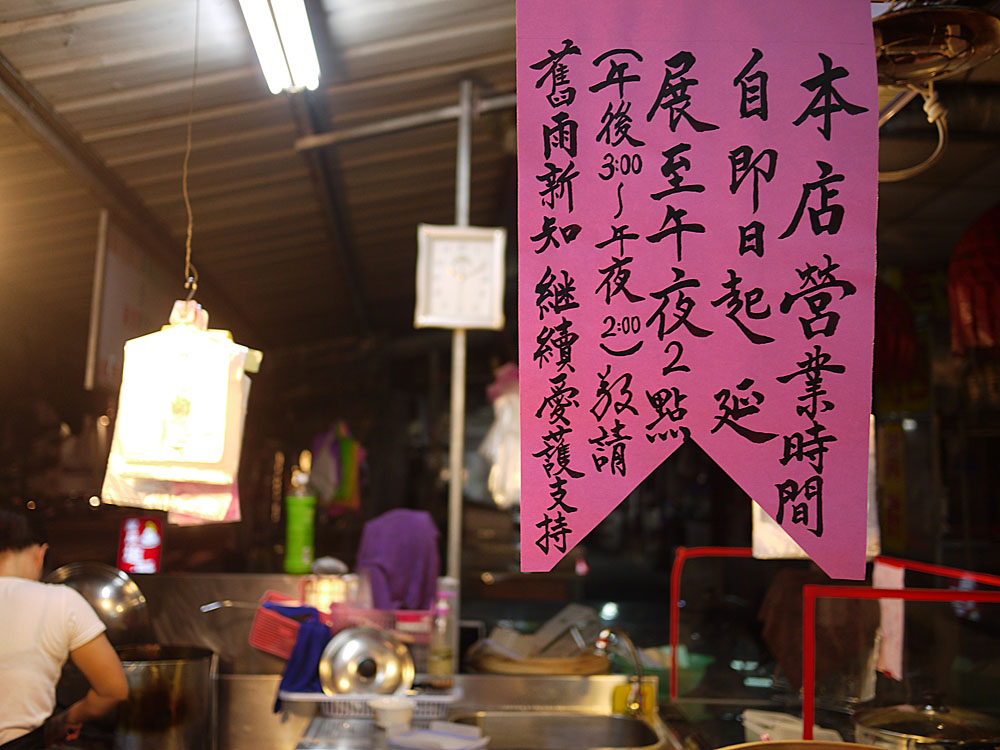 本店營業時間
自即日起 延
展至午夜2點
(午後3:00~午夜2:00)敬請
舊雨新知 繼續愛護支持